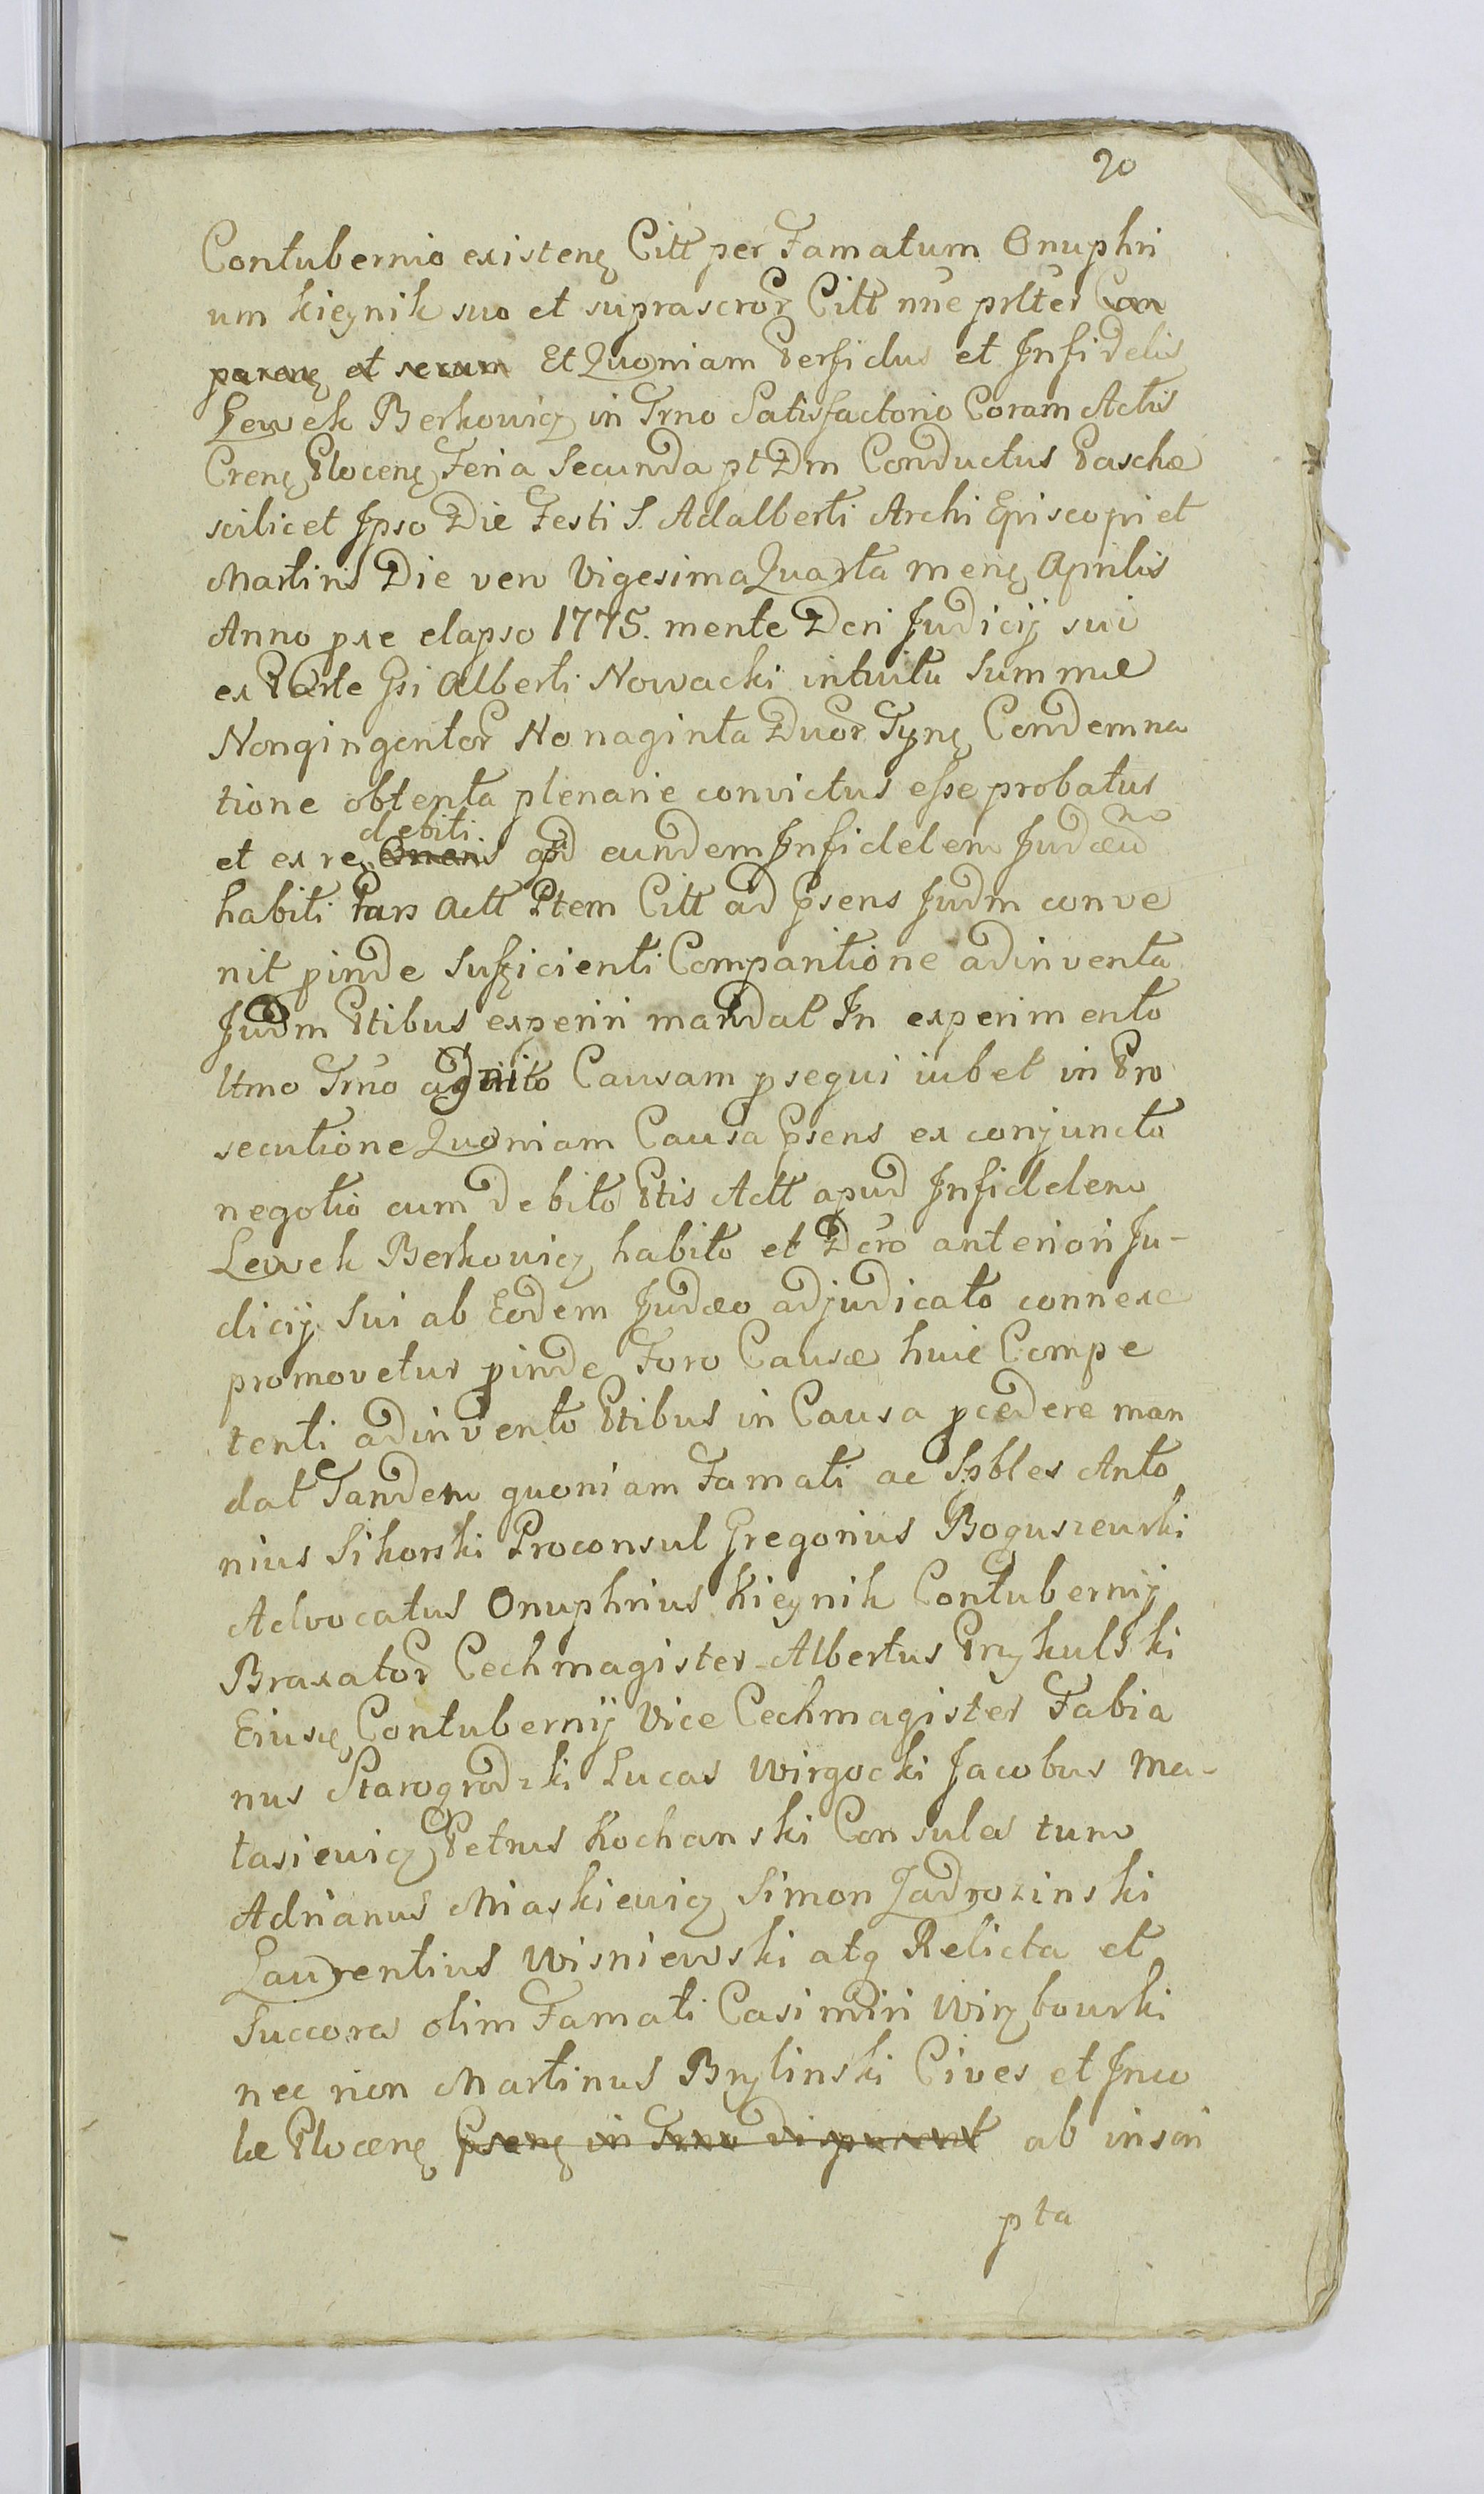 20
Contubernio existenę Citt per Famatum Onuphri
um Kięznik suo et suprascror Citt nñe prlter Com
parenę et secum Et Quoniam Perfidus et Infidelis
Lewek Berkowicz in Trno Satisfactorio Coram Actis
Crenę Plocenę Feria Secunda pt Dm Conductus Paschæ
scilicet Ipso Die Festi S. Adalberti Archi Episcopi et
Martiris Die vero Vigesima Quarta menę Aprilis
Anno pxe elapso 1775. mente Dcri Judicij sui
ex Parte Gsi Alberti Nowacki intuitu Summæ
Nongingentor Nonaginta Duor Tynę Condemna
tione obtenta plenarie convictus esse probatur
debiti
et ex re Oneris apd eundem Infidelem Judæu
habiti Pars Actt Ptem Citt ad Psens Judm conve
nit pinde Sufficienti Comparitione adinventa
Judm Ptibus experiri mandat In experimento
ltmo Trno agnito Causam psequi iubet in Pro
secutione Quoniam Causa Psens ex conjuncto
negotio cum debito Ptis Actt apud Infidelem
Lewek Berkowicz habito et Dcro anteriori Ju-
dicij Sui ab Eodem Judæo adjudicato connexe
promovetur pinde Foro Causæ huic Compe
tenti adinvento Ptibus in Causa pcedere man
dat Tandem quoniam Famati ac Spbles Anto
nius Sikorski Proconsul Gregorius Boguszewski
Advocatus Onuphrius Kięznik Contubernij
Braxator Cechmagister Albertus Przykulski
Eiusę Contubernij Vice Cechmagister Fabia
nus Starogrodzki Lucas Wirgocki Jacobus Ma-
tasiewicz Petrus Kochanski Consules tum
Adrianus Miaskiewicz Simon Zadrozinski
Laurentius Wisniewski atq Relicta et
Succores olim Famati Casimiri Wirzbowski
nec non Martinus Brylinski Cives et Inco
læ Plocenę Psenę in Trno disparent ab inscri
pta